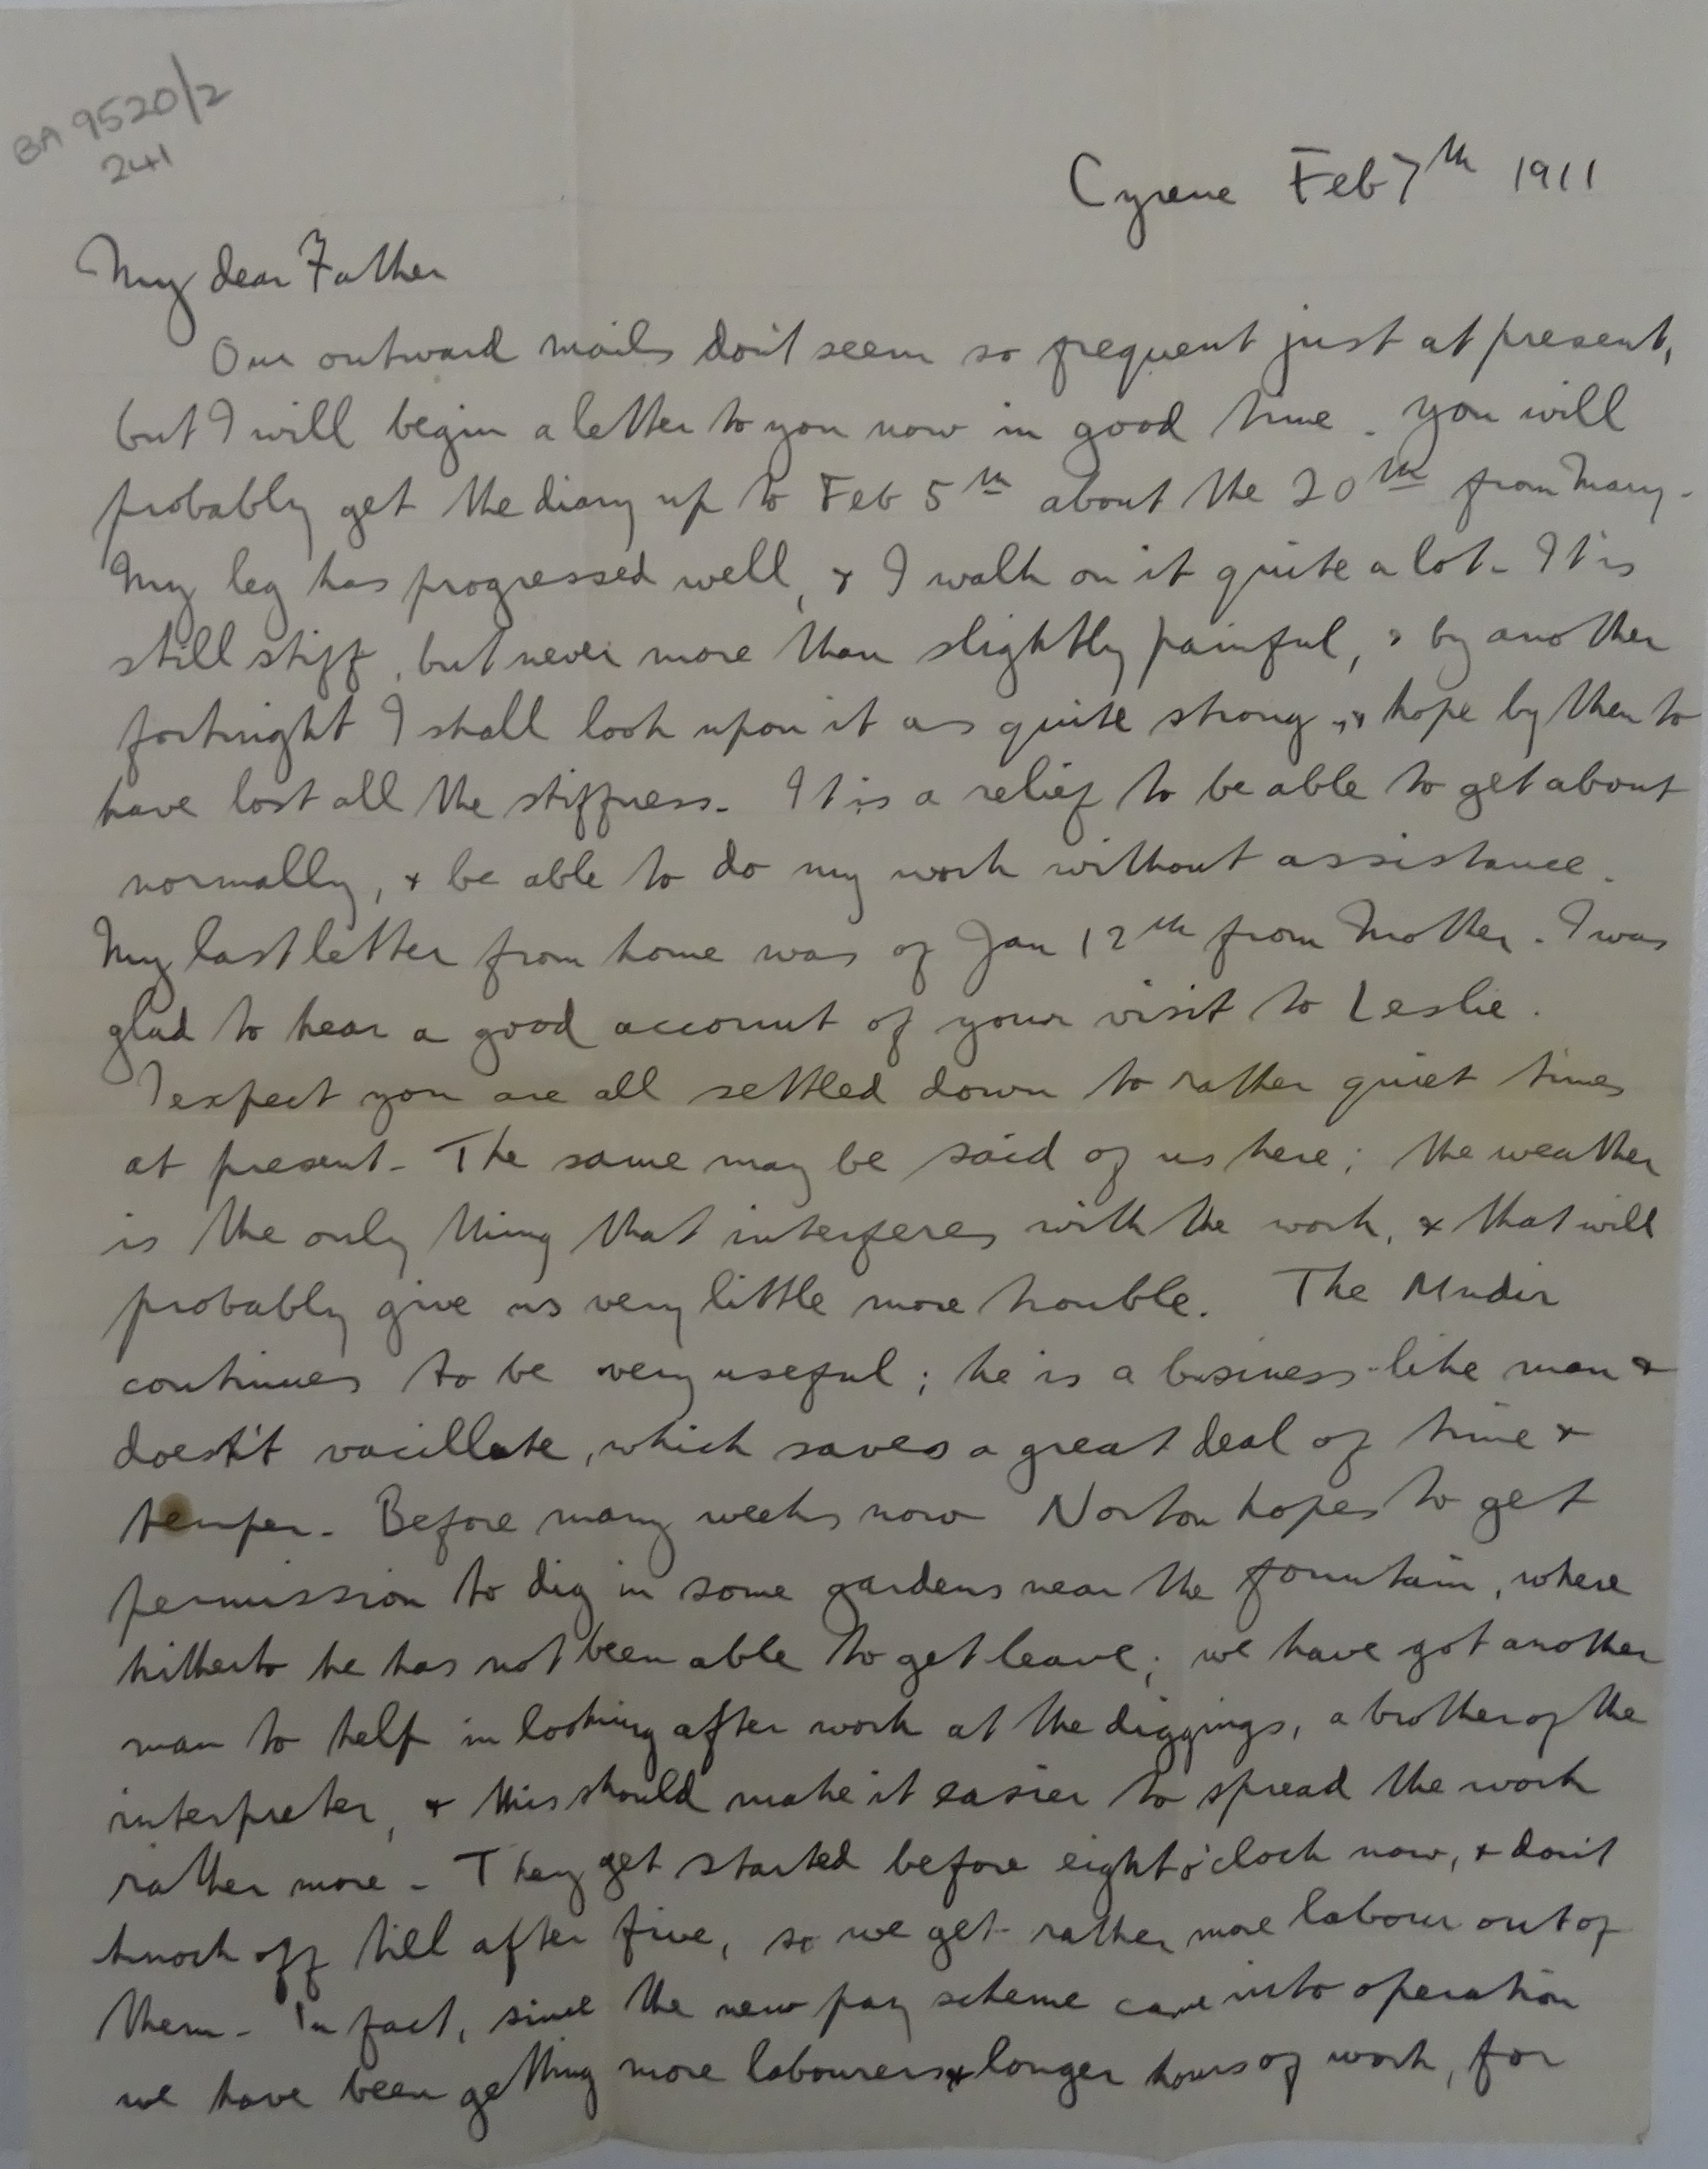 BA 9520/2
241
Cyrene Feb 7th 1911
My dear Father
Our outward mails don't seem so frequent just at present,
but I will begin a letter to you now in good time. You will
probably get the diary up to Feb 5th about the 20th from Mary.
My leg has progressed well, & I walk on it quite a lot. It is
still stiff, but never more than slightly painful, & by another
fortnight I shall look upon it as quite strong, & hope by then to
have lost all the stiffness. It is a relief to be able to get about
normally, & be able to do my work without assistance.
My last letter from home was of Jan 12th from Mother. I was
glad to hear a good account of your visit to Leslie.
I expect you are all settled down to rather quiet times
at present. The same may be said of us here; the weather
is the only thing that interferes with the work, & that will
probably give us very little more trouble. The Mudir
continues to be very useful; he is a business-like man &
doesn't vacillate, which saves a great deal of time &
temper. Before many weeks now Norton hopes to get
permission to dig in some gardens near the fountain, where
hitherto he has not been able to get leave; we have got another
man to help in looking after work at the diggings, a brother of the
interpreter, & this should make it easier to spread the work
rather more. They get started before eight o'clock now, & don't
knock off till after five, so we get rather more labour out of
them. In fact, since the new pay scheme came into operation
we have been getting more labourers & longer hours of work, for